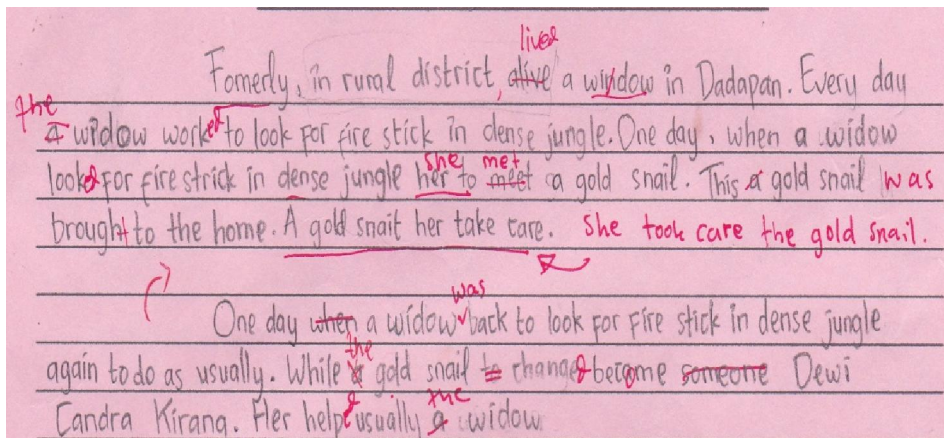 lived
Fomerly, in rural district, alive a window in Dadapan. Every day
the
A widow worked to look for fire stick in dense jungle. One day, when a widow
she met
looked for fire strick in dense jungle her to meet a gold snail. This a gold snail was
brought to the home. A gold snait her take care. She took care the gold snail.
was
One day when a widow back to look for fire stick in dense jungle
the
again to do as usually. While a gold snail to changed become someone Dewi
the
Candra Kirana. Her helped usually a widow